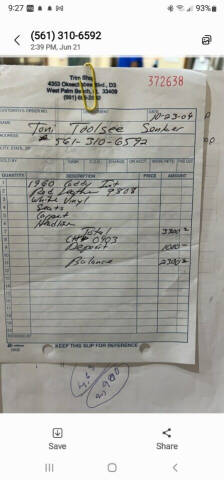 9:27
93%
(561) 310-6592
2:39 PM, Jun 21
Trim Shop
4353 Okeechobee Blvd., D3
West Palm Beach, FL 33409
372638
CUSTOMER'S ORDER NO.
DATE
10-23-04
NAME
Toni Toolsee Sonker
ADDRESS
561-310-6592
CITY, STATE, ZIP
SOLD BY CASH C.O.D. CHARGE ON ACCT. MDSE RETD PAID OUT
QUANTITY DESCRIPTION PRICE AMOUNT
1960 Caddy Int
Red Leather 9808
White Vinyl
Seats
Carpet
Headliner
Total 3300
CH# 0903
Deposit 1000
Balance 2300
KEEP THIS SLIP FOR REFERENCE
Save
Share